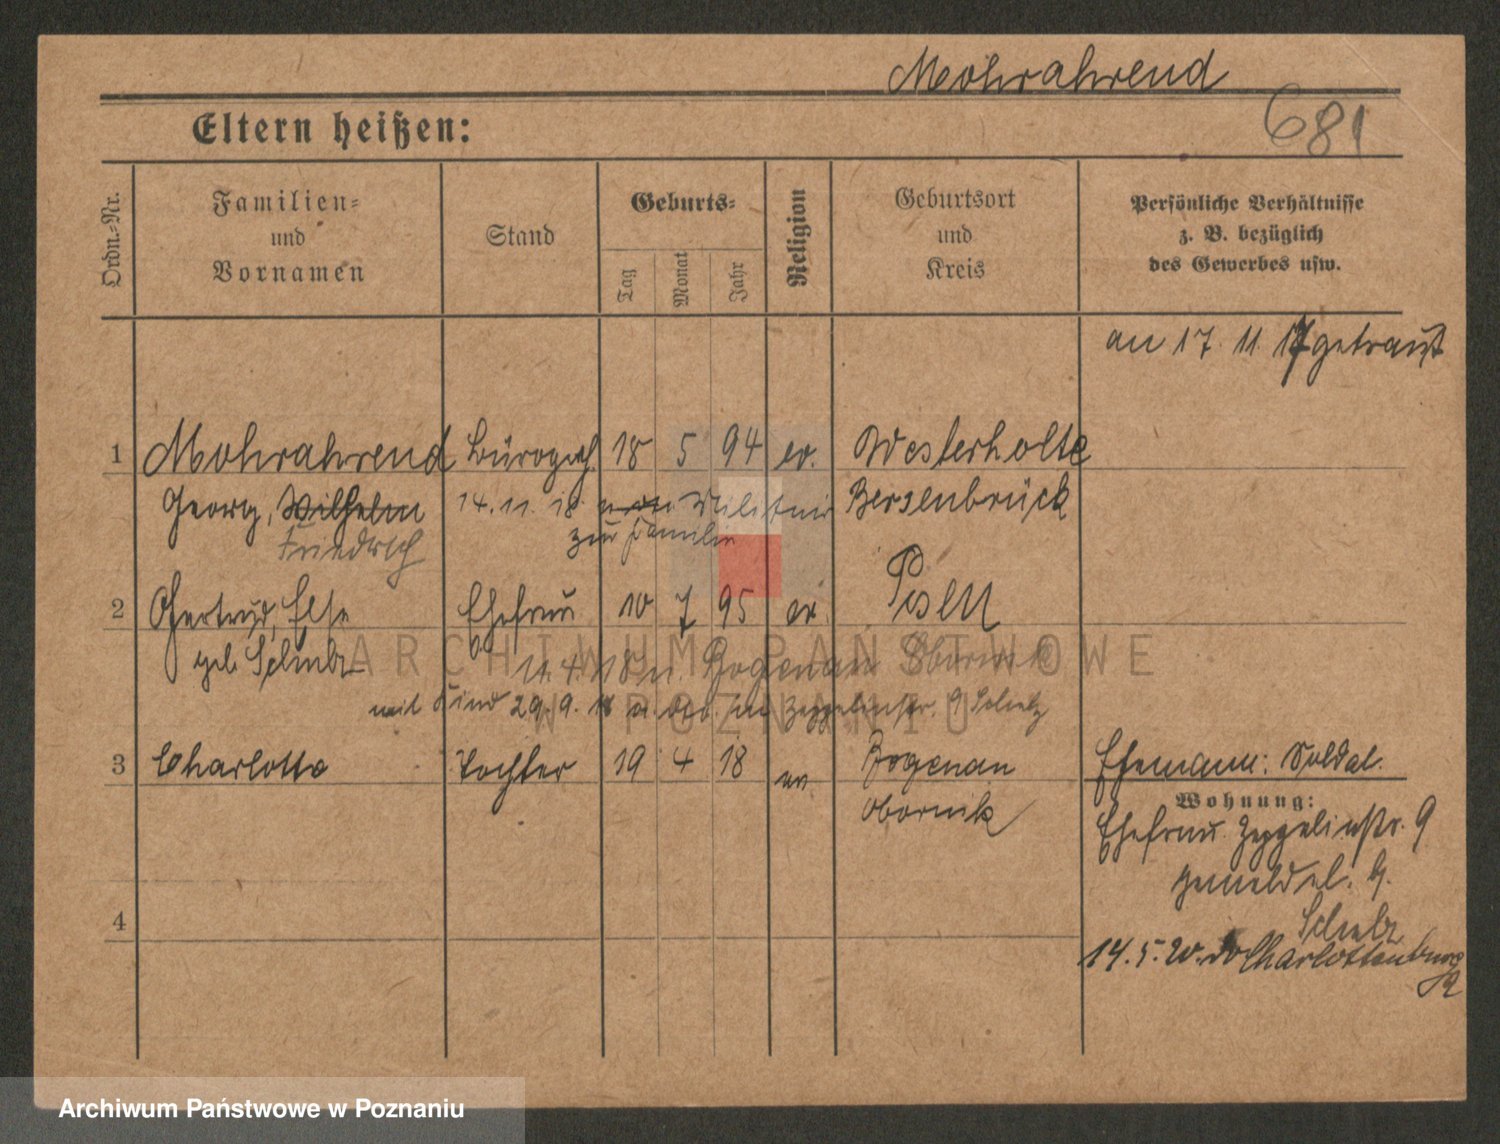 Mohrahrend
681
Eltern heißen:
Ordn.-Nr.
Familien-
und
Vornamen
Stand
Geburts-
Tag
Monat
Jahr
Religion
Geburtsort
und
Kreis
Persönliche Verhältnisse
z. B. bezüglich
des Gewerbes usw.
an 17. 11. 17 getraut
1 Mohrahrend Bürogeh. 18 5 94 ev. Westerholte
Georg, Wilhelm 14. 11. 18 Militär Bersenbrück
Friedrich zur Familie
2 Gertrud, Else Ehefrau 10 7 95 ev. Posen
geb. Schulz 11. 4. 18 n. Bogenau Obornik
mit Kind 29. 9. 18 Zeppelinstr. 9
3 Charlotte Tochter 19 4 18 ev. Bogenau Ehemann: Soldat.
Obornik
Wohnung:
Ehefrau Zeppelinstr. 9
gemeldet. b.
4
14. 5. 20. Charlottenburg
ARCHIWUM PAŃSTWOWE
W POZNANIU
Archiwum Państwowe w Poznaniu